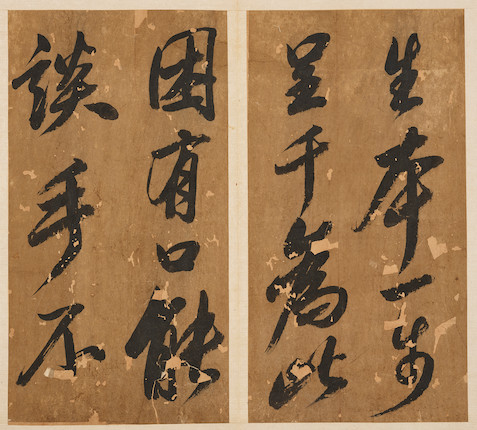 生本一
呈千為此
因有口能
談手不